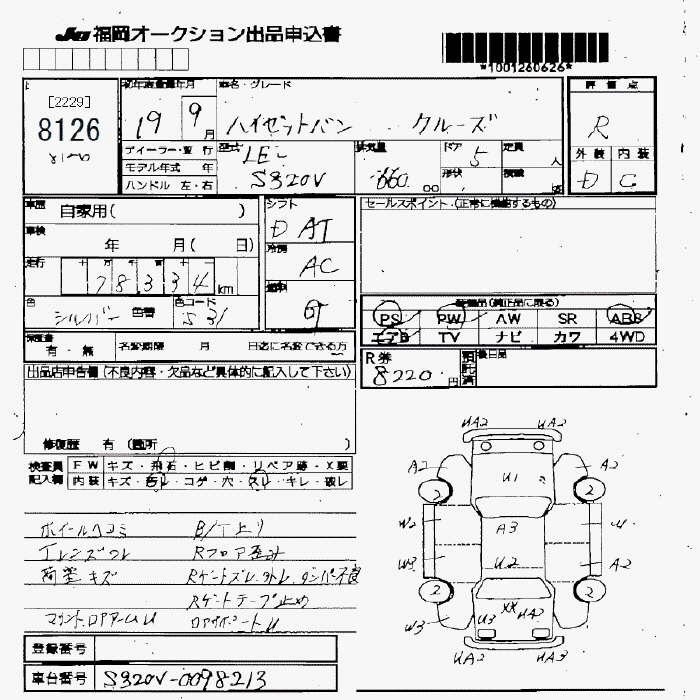 JU 福岡オークション出品申込書
*1001260626*
[2229]
8126
8100
初年度登録年月
19 9月
車名・グレード
ハイゼットバン クルーズ
評価点
R
外装 内装
D C
ディーラー・並行
モデル年式 年
ハンドル 左・右
型式
LE-
S320V
排気量
660 00
ドア
5
形状
定員
人
積載
車歴
自家用( )
車検
年 月( 日)
走行
十 万 千 百 十 一
78334 km
色
シルバー
色替
色コード
S31
シフト
D AT
冷房
AC
燃料
G
セールスポイント(正常に機能するもの)
装備品(純正品に限る)
PS PW AW SR ABS
エアB TV ナビ カワ 4WD
保証書
有・無
名変期限 月 日迄に名変できる方
R券
8220円
預託済
後日品
出品店申告欄(不良内容・欠品など具体的に記入して下さい)
修復歴 有(箇所 )
検査員
記入欄
FW キズ・飛石・ヒビ割・リペア跡・X要
内装 キズ・汚れ・コゲ・穴・スレ・キレ・破レ
ホイールヘコミ B/T上り
Tレンズワレ Rフロア歪み
荷室キズ Rゲートズレ、外レ、ダンパ不良
Rゲートテープ止め
登録番号
車台番号 S320V-0098213
UA2 UA2
A2 A2
2 2
U1
W2 A3 U
W3 U2 A2
2 2
XX
U3 UA2
W3
UA2 UA3